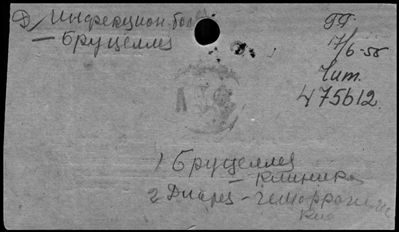 Д) Инфекцион. бол.
— Бруцеллез
17/6-55
Чит.
475612.
1 Бруцеллез
— клиника
2 Диарез - геморрагич